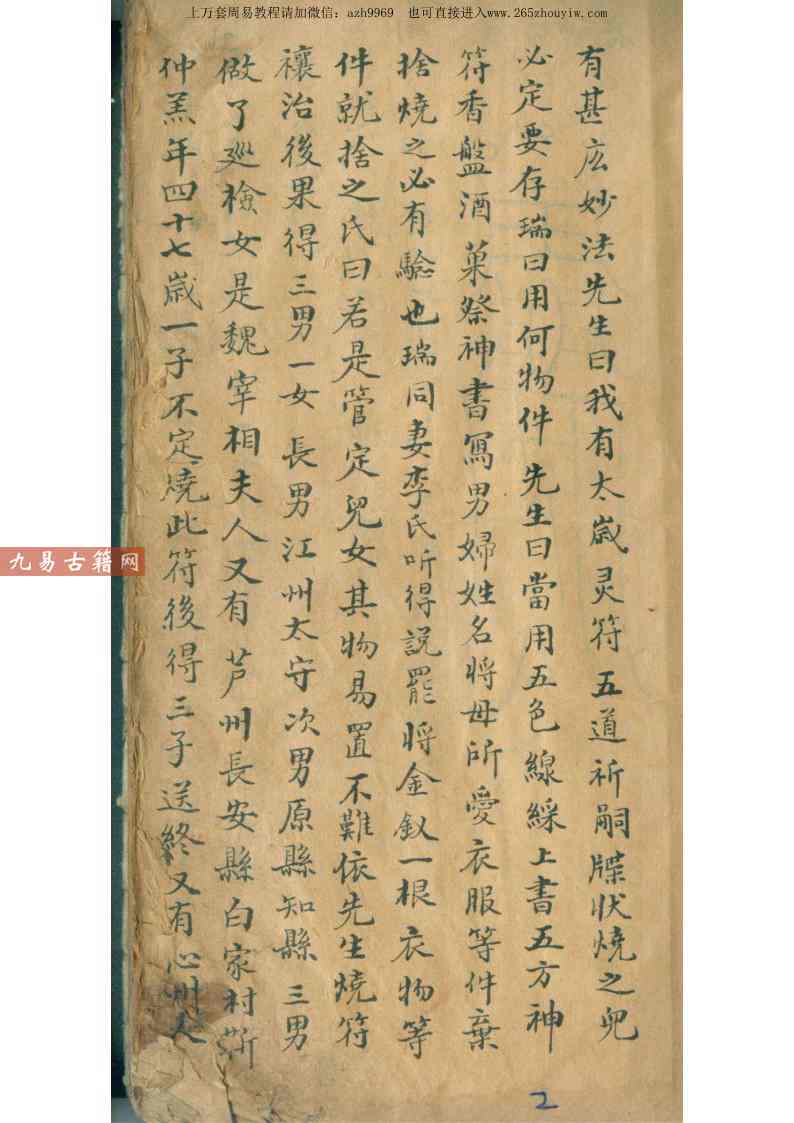 上万套周易教程请加微信：azh9969　也可直接进入www.265zhouyiw.com
有甚庅妙法先生曰我有太嵗灵符五道祈嗣牒状燒之兒
必定要存瑞曰用何物件先生曰當用五色線綵上書五方神
符香盤酒菓祭神書寫男婦姓名將母所愛衣服等件棄
捨燒之必有驗也瑞同妻李氏听得説罷將金釵一根衣物等
件就捨之氏曰若是管定兒女其物易置不難依先生燒符
禳治後果得三男一女長男江州太守次男原縣知縣三男
做了廵檢女是魏宰相夫人又有芦州長安縣白家村
仲羔年四十七嵗一子不定燒此符後得三子送終又有心州
九易古籍网
2